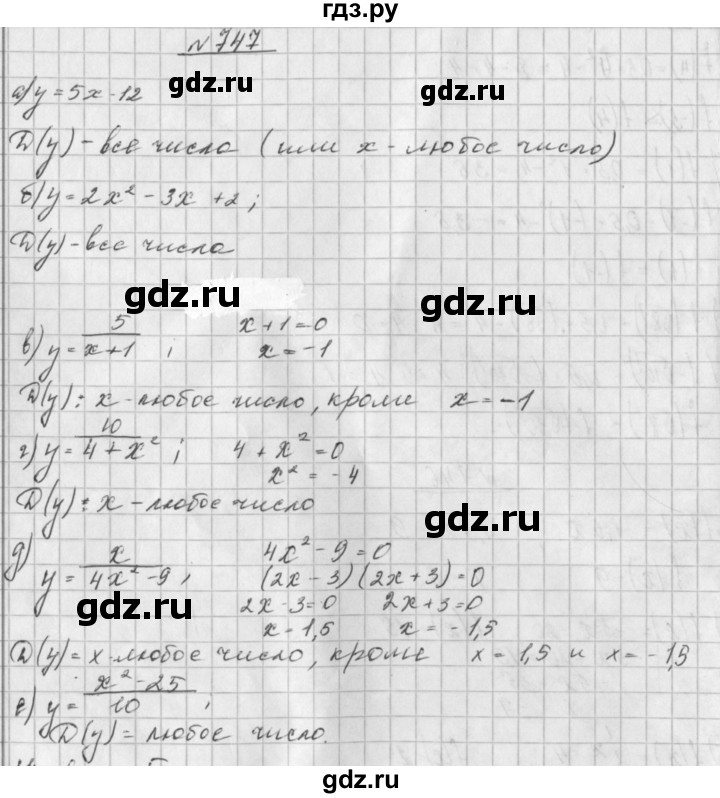 гдз.ру
№ 747
gdz.ru gdz.ru
а) y = 5x - 12
D(y) - все числа (или x - любое число)
б) y = 2x² - 3x + 2;
D(y) - все числа
gdz.ru gdz.ru
в) y = 5/(x+1) ; x + 1 = 0
x = -1
D(y): x - любое число, кроме x = -1
г) y = 10/(4 + x²) ; 4 + x² = 0
x² = -4
D(y): x - любое число
gdz.ru gdz.ru
д) y = x/(4x² - 9) , 4x² - 9 = 0
(2x - 3)(2x + 3) = 0
2x - 3 = 0 2x + 3 = 0
x - 1,5 x = -1,5
D(y) = x - любое число, кроме x = 1,5 и x = -1,5
е) y = (x² - 25)/10 ;
D(y) = любое число.
gdz.ru gdz.ru
gdz.ru